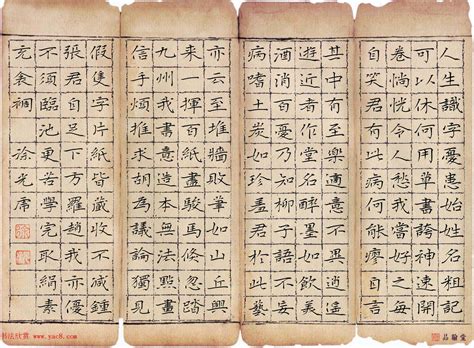 人生識字憂患始姓名粗記
可以休何用草書誇神速開
卷惝恍令人愁我嘗好之每
自笑君有此病何能瘳自言
其中有至樂適意無異逍遙
遊近者作堂名醉墨如飲美
酒消百憂乃知柳子語不妄
病嗜土炭如珍羞君於此藝
亦云至堆牆敗筆如山丘興
來一揮百紙盡駿馬倏忽踏
九州我書意造本無法點畫
信手煩推求胡為議論獨見
假隻字片紙皆藏收不減鍾
張君自足下方羅趙我亦優
不須臨池更苦學完取絹素
充衾裯
书法欣赏 www.yac8.com